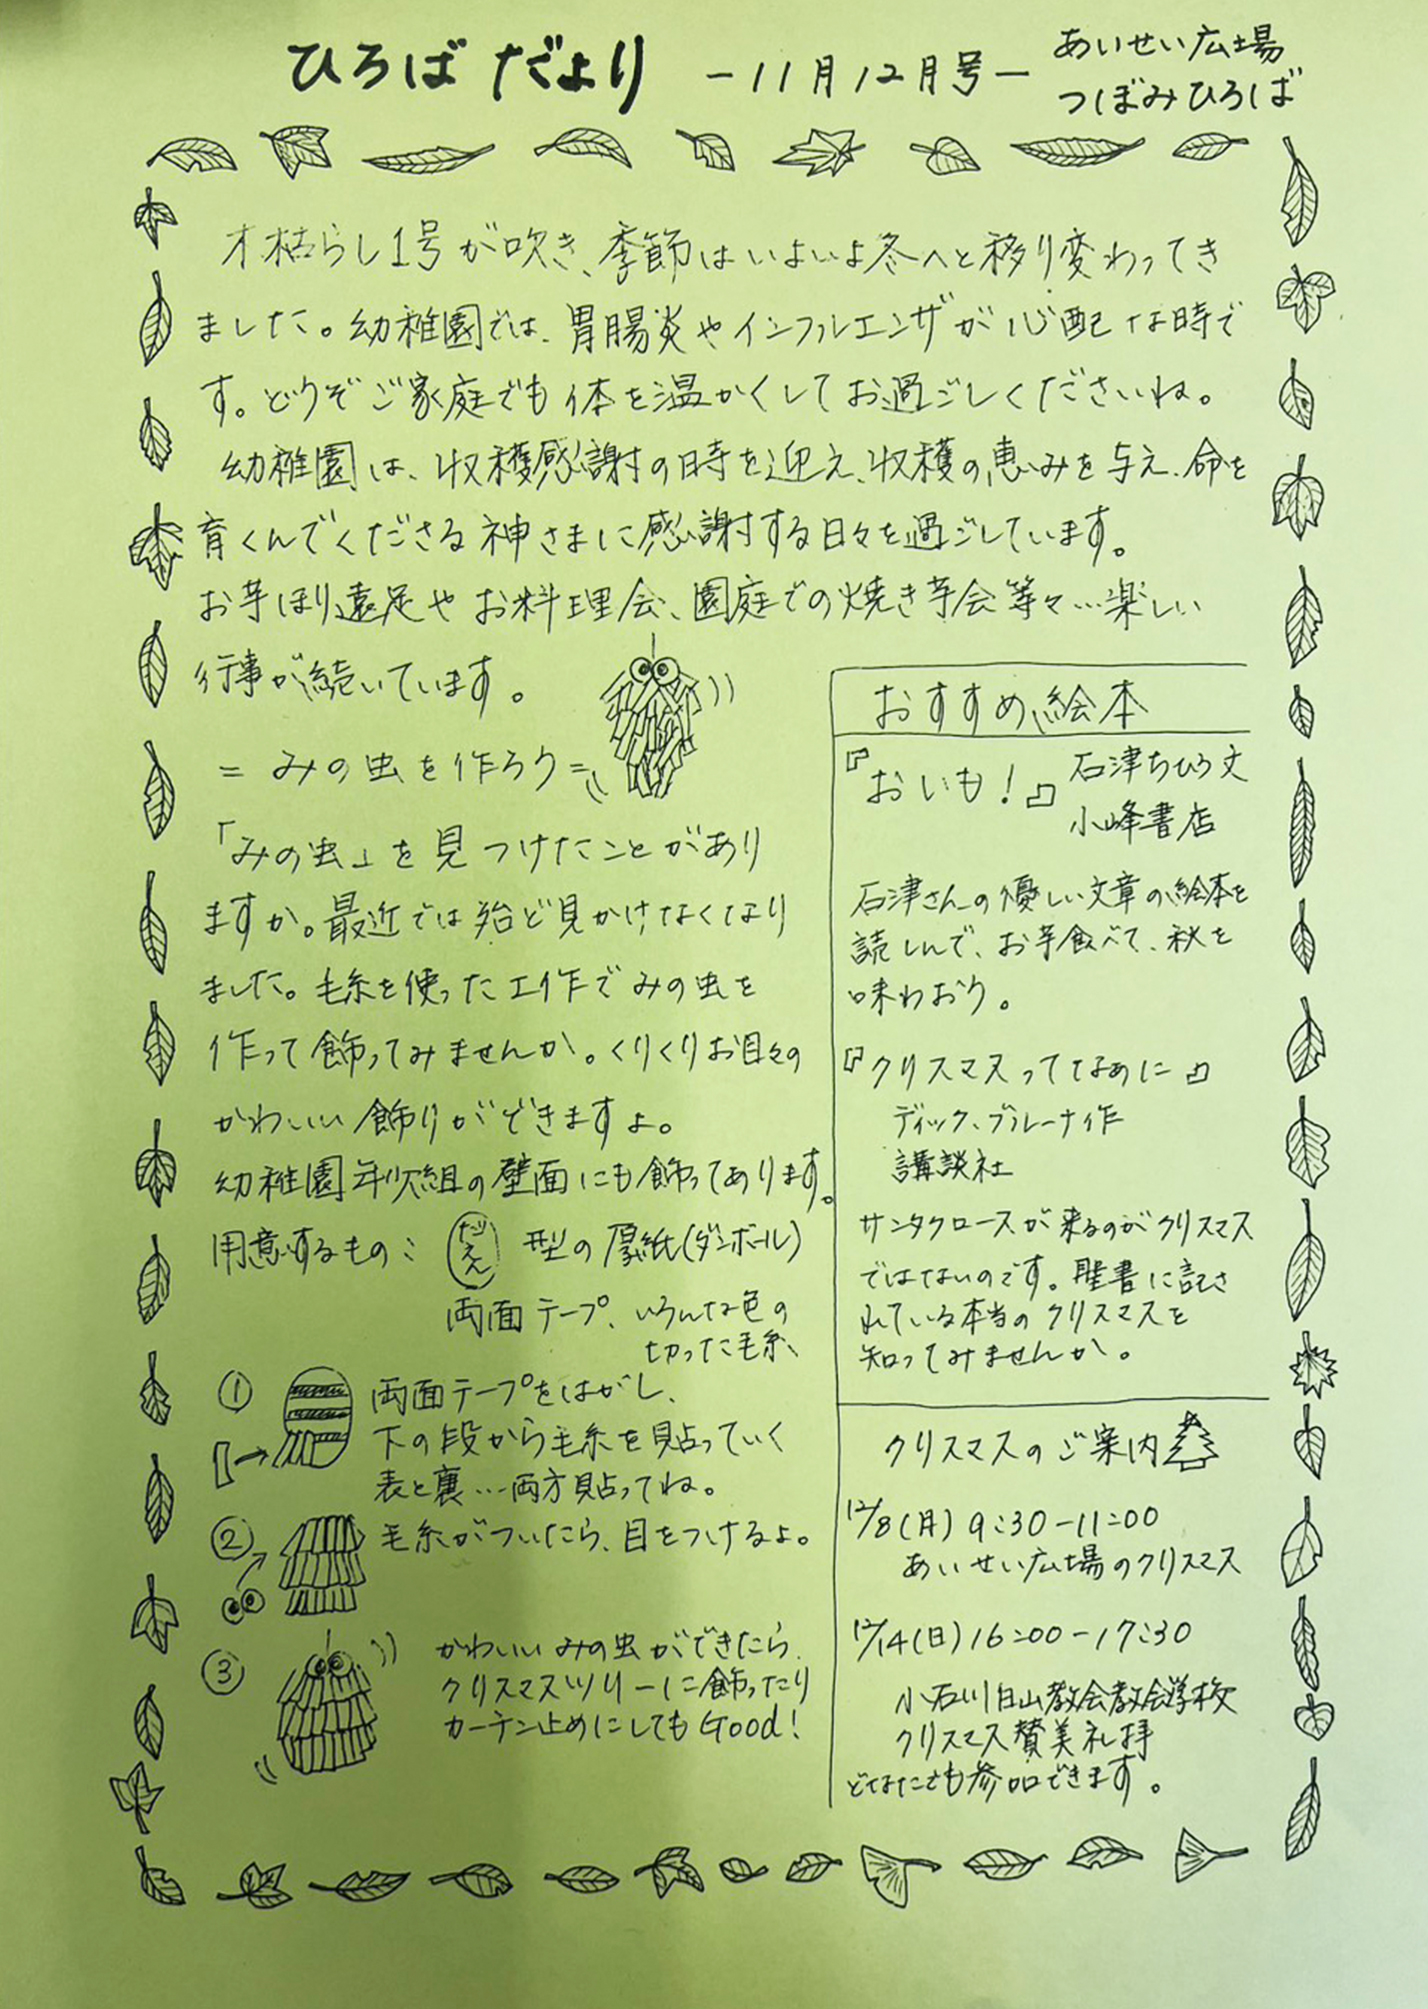 ひろばだより －11月12月号－
あいせい広場
つぼみひろば
木枯らし1号が吹き、季節はいよいよ冬へと移り変わってき
ました。幼稚園では、胃腸炎やインフルエンザが心配な時で
す。どうぞご家庭でも体を温かくしてお過ごしくださいね。
幼稚園は、収穫感謝の時を迎え、収穫の恵みを与え、命を
育くんでくださる神さまに感謝する日々を過ごしています。
お芋ほり遠足やお料理会、園庭での焼き芋会等々…楽しい
行事が続いています。
＝みの虫を作ろう＝
「みの虫」を見つけたことがあり
ますか。最近では殆ど見かけなくなり
ました。毛糸を使った工作でみの虫を
作って飾ってみませんか。くりくりお目々の
かわいい飾りができますよ。
幼稚園年少組の壁面にも飾ってあります。
用意するもの：だえん型の厚紙(ダンボール)
両面テープ、いろんな色の
切った毛糸、
① 両面テープをはがし、
下の段から毛糸を貼っていく
表と裏…両方貼ってね。
② 毛糸がついたら、目をつけるよ。
③ かわいいみの虫ができたら、
クリスマスツリーに飾ったり
カーテン止めにしてもGood！
おすすめ絵本
『おいも！』 石津ちひろ文
小峰書店
石津さんの優しい文章の絵本を
読しんで、お芋食べて、秋を
味わおう。
『クリスマスってなあに』
ディック、ブルーナ作
講談社
サンタクロースが来るのがクリスマス
ではないのです。聖書に記さ
れている本当のクリスマスを
知ってみませんか。
クリスマスのご案内
12/8(月) 9:30－11:00
あいせい広場のクリスマス
12/14(日) 16:00－17:30
小石川白山教会教会学校
クリスマス賛美礼拝
どなたでも参加できます。